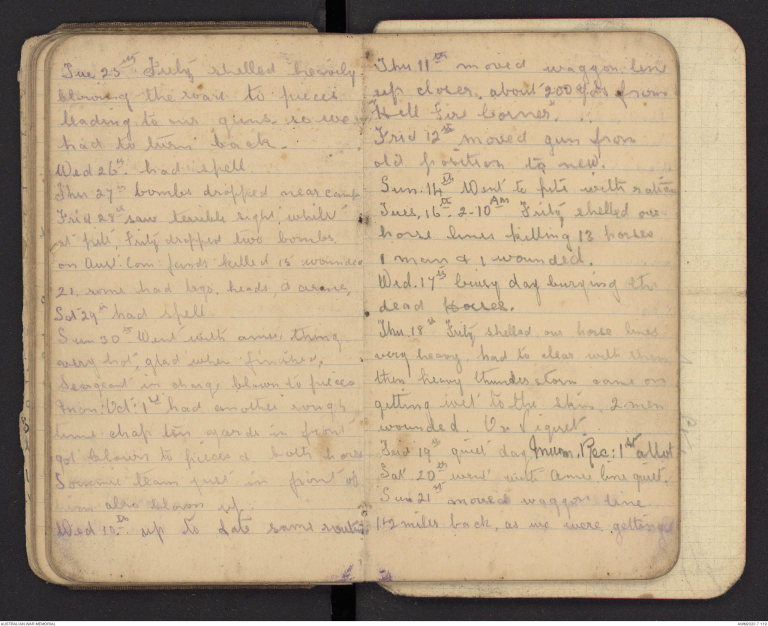 Tue 25th Fritz shelled heavily
blowing the road to pieces
leading to our guns. so we
had to turn back.
Wed 26th. had spell
Thur 27th bombs dropped near camp
Frid 28th saw terrible sight, whilst
at pits, Fritz dropped two bombs
on Aust. Com killed 15 wounded
21, some had legs, heads, & arms,
Sat 29th had spell
Sun 30th Went with amm, thing
very hot, glad when finished,
Sergeant in charge blown to pieces
Mon. Oct. 1st had another rough
time chap ten yards in front
got blown to pieces & both
Someone team just in front of
me also blown up.
Wed 10th up to date same
Thu 11th moved waggon line
up closer, about 200 yds from
Hell Fire Corner.
Frid 12th moved gun from
old position to new.
Sun. 14th Went to pits with
Tues, 16th. 2-10 AM Fritz shelled our
horse lines killing 13 horses
1 man & 1 wounded.
Wed. 17th busy day burying
dead horses.
Thu. 18th Fritz shelled our horse lines
very heavy, had to clear with them
then heavy thunder storm came on
getting wet to the skin. 2 men
wounded.
Frid 19th quiet day 1st
Sat. 20th went with Amm line quiet.
Sun 21st moved waggon line
1½ miles back, as we were getting
AUSTRALIAN WAR MEMORIAL